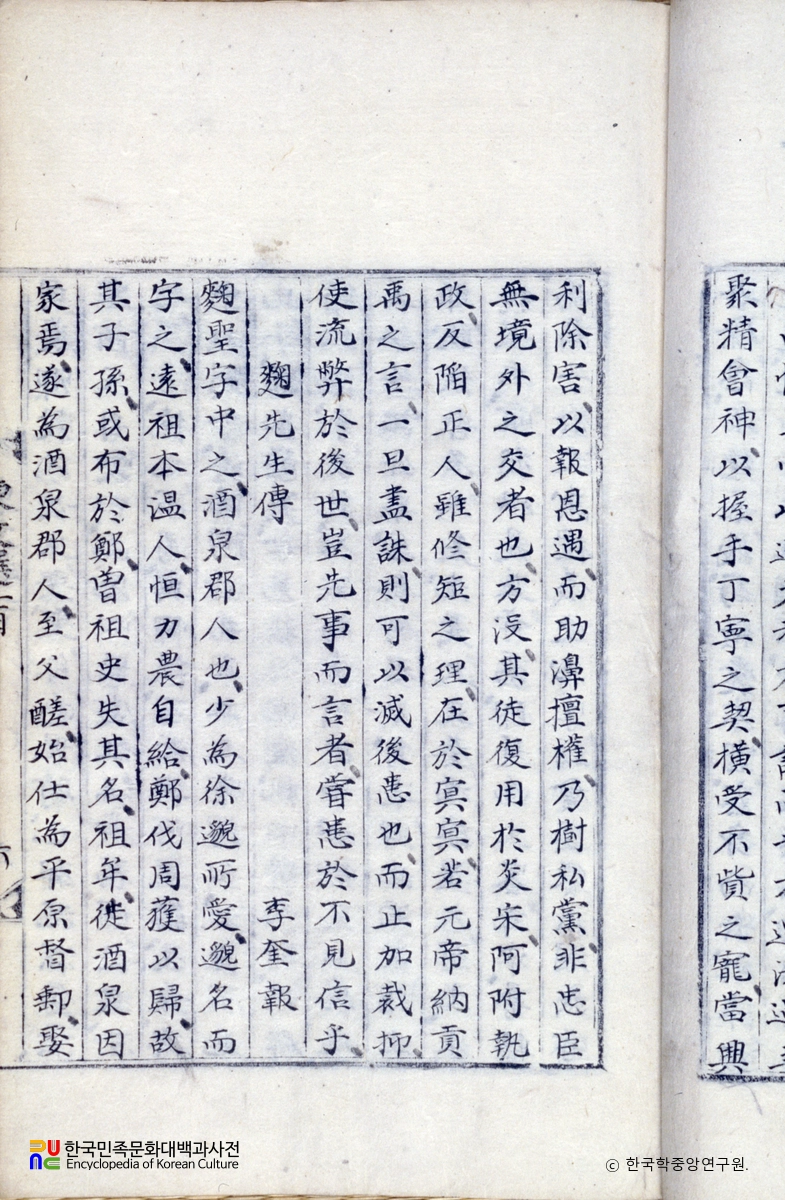 聚精會神以握手丁寧之契橫受不貲之寵當興
利除害以報恩遇而助濞擅權乃樹私黨非忠臣
無境外之交者也方沒其徒復用於炎宋阿附執
政反陷正人雖修短之理在於冥冥若元帝納貢
禹之言一旦盡誅則可以滅後患也而止加裁抑
使流弊於後世豈先事而言者甞患於不見信乎
麴先生傳 李奎報
麴聖字中之酒泉郡人也少為徐邈所愛邈名而
字之遠祖本温人恒力農自給鄭伐周獲以歸故
其子孫或布於鄭曾祖史失其名祖年徙酒泉因
家焉遂為酒泉郡人至父醝始仕為平原督郵娶
六
한국민족문화대백과사전
Encyclopedia of Korean Culture
ⓒ 한국학중앙연구원.